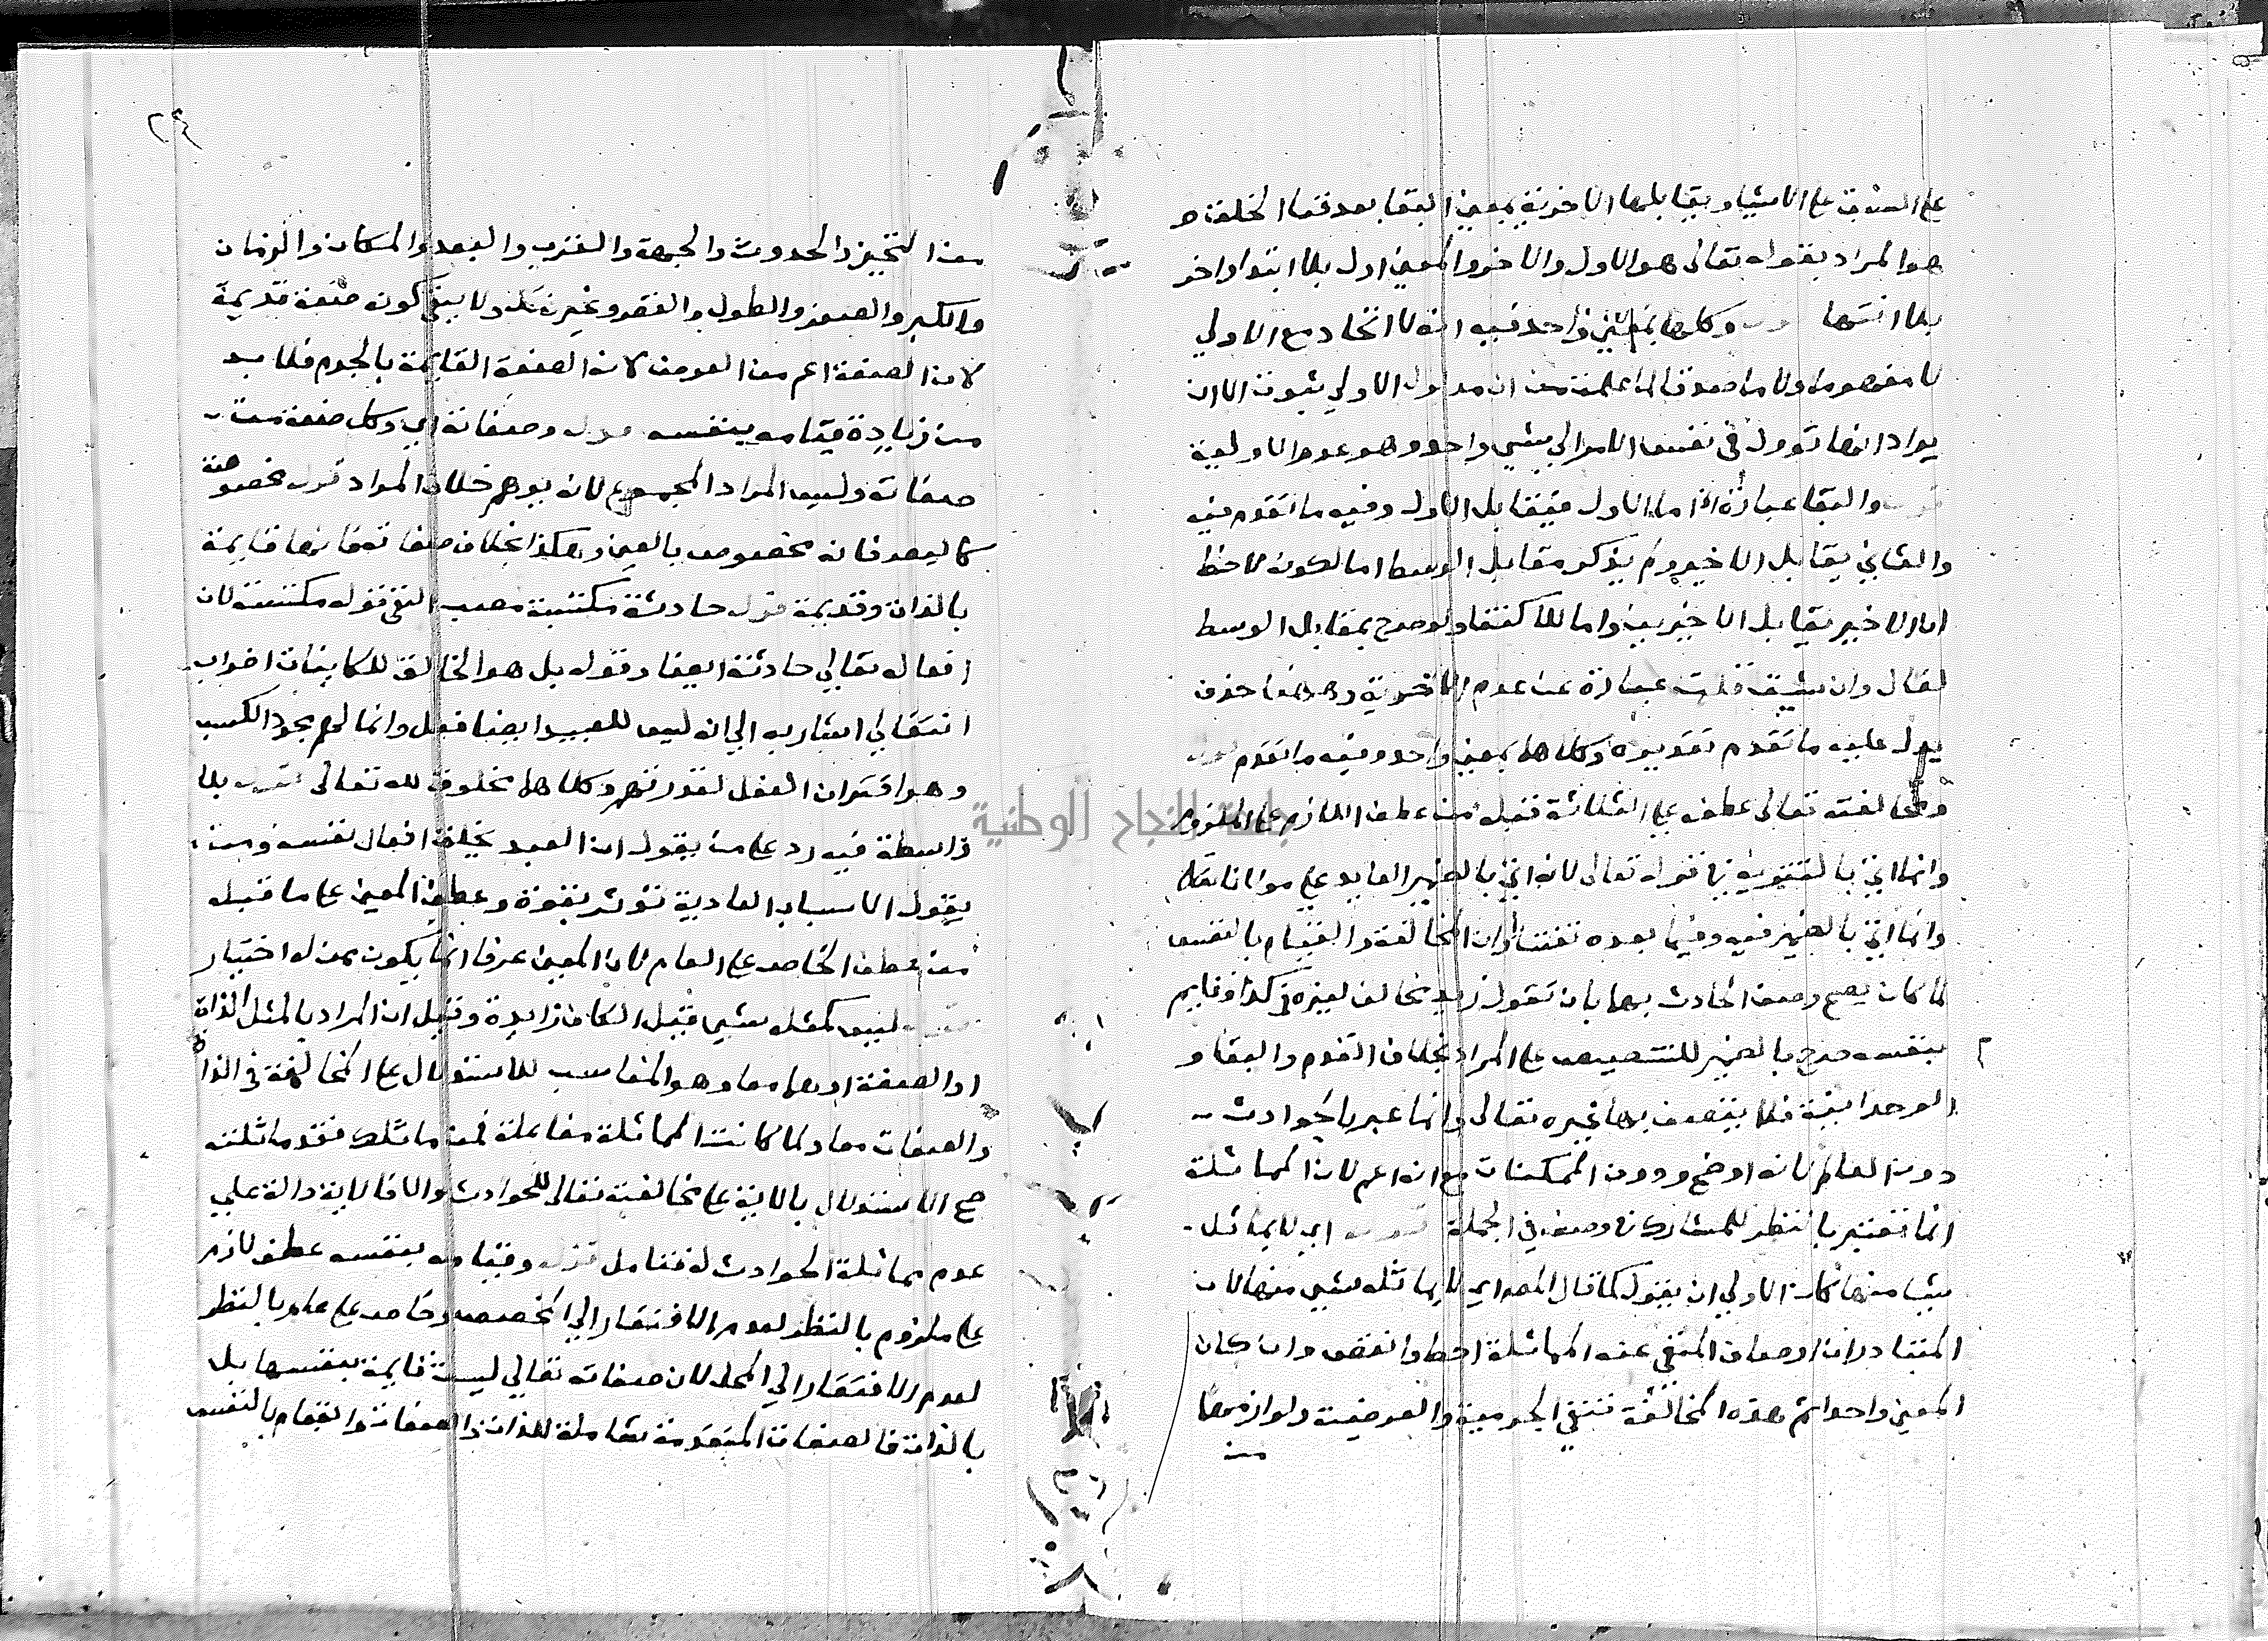 على السبق على الاشيا ويقابلها الاخرية بمعنى البقا بعد فنا الخلق و
هو المراد بقوله تعالى هو الاول والاخر والمعنى اول بلا ابتدا واخر
بلا انتها وكلها بمعنى واحد فيه انه لا اتحاد مع الاولى
لا مفهوما ولا ما صدقا لما علمت من ان مدلول الاولى ثبوت الا ان
يراد انها تؤول فى نفس الامر الى شي واحد وهو عدم الاولية
والبقا عبارة اذا ما الاول فيقابل الاول وفيه ما تقدم فيه
والثاني يقابل الاخير ولم يذكر مقابل الوسط اما لكونه لاحظ
ان الاخير يقابل الاخيرين واما للاكتفا ولو صرح بمقابل الوسط
لقال وان شيت قلت عبارة عن عدم الاخرية وههنا حذف
يدل عليه ما تقدم تقديره وكلاهما بمعنى واحد وفيه ما تقدم قوله
ومخالفته تعالى عطف على الثلاثة قبله من عطف اللازم على الملزوم
وانما اتى بالتنويه في قوله تعالى لانه اتى بالضمير العايد على مولانا تعالى
وانما اتى بالضمير فيه وفيما بعده تفننا ولان المخالفة والقيام بالنفس
لما كان يصح وصف الحادث بها بان تقول زيد مخالف لغيره فى كذا وقايم
بنفسه صرح بالضمير للتنصيص على المراد بخلاف القدم والبقا و
الوحدانية فلا يتصف بها غيره تعالى وانما عبر بالحوادث
دون العالم لانه اوضح ودون الممكنات مع انه اعم لان المماثلة
انما تعتبر بالنظر للمشارك في وصف في الجملة قوله اي لا يماثل
شيا منها كان الاولى ان يقول كما قال المص اي لا يماثله شي منها لان
المتبادر ان اوصاف المنفي عنه المماثلة احط وانقص وان كان
المعنى واحدا ثم هذه المخالفة تنفي الجرمية والعرضية ولوازمهما
من
٢٤
من التحيز والحدوث والجهة والقرب والبعد والمكان والزمان
والكبر والصغر والطول والقصر وغير ذلك ولا ينفى كونه صفة قديمة
لان الصفة اعم من العرض لان الصفة القايمة بالجرم فلا بد
من زيادة قيامه بنفسه قوله وصفاته اي وكل صفة من
صفاته وليس المراد المجموع لانه يوهم خلاف المراد قوله مخصوصة
كالبصر فانه مخصوص بالعين وهكذا بخلاف صفاته تعالى فانها قايمة
بالذات وقديمة قوله حادثة مكتسبة مصب النفى قوله مكتسبة لان
افعاله تعالى حادثة ايضا وقوله بل هو الخالق للكاينات اضراب
انتقالي اشار به الى انه ليس للعبيد ايضا فعل وانما لهم مجرد الكسب
وهو اقتران الفعل لقدرتهم وكلاهما مخلوق لله تعالى قوله بلا
واسطة فيه رد على من يقول ان العبد يخلق افعال نفسه ومن
يقول الاسباب العادية تؤثر بقوة وعطف المعين على ما قبله
من عطف الخاص على العام لان المعين عرفا انما يكون ممن له اختيار
قوله ليس كمثله شي قيل الكاف زايدة وقيل ان المراد بالمثل الذات
او الصفة او هما معا وهو المناسب للاستدلال على المخالفة فى الذات
والصفات معا ولما كانت المماثلة مفاعلة فمن ماثلك فقد ماثلته
صح الاستدلال بالاية على مخالفته تعالى للحوادث والا فالاية دالة على
عدم مماثلة الحوادث له فتامل قوله وقيامه بنفسه عطف لازم
على ملزوم بالنظر لعدم الافتقار الى المخصص وخاص على عام بالنظر
لعدم الافتقار الى المحل لان صفاته تعالى ليست قايمة بنفسها بل
بالذات فالصفات المتقدمة شاملة للذات والصفات والقيام بالنفس
جامعة النجاح الوطنية